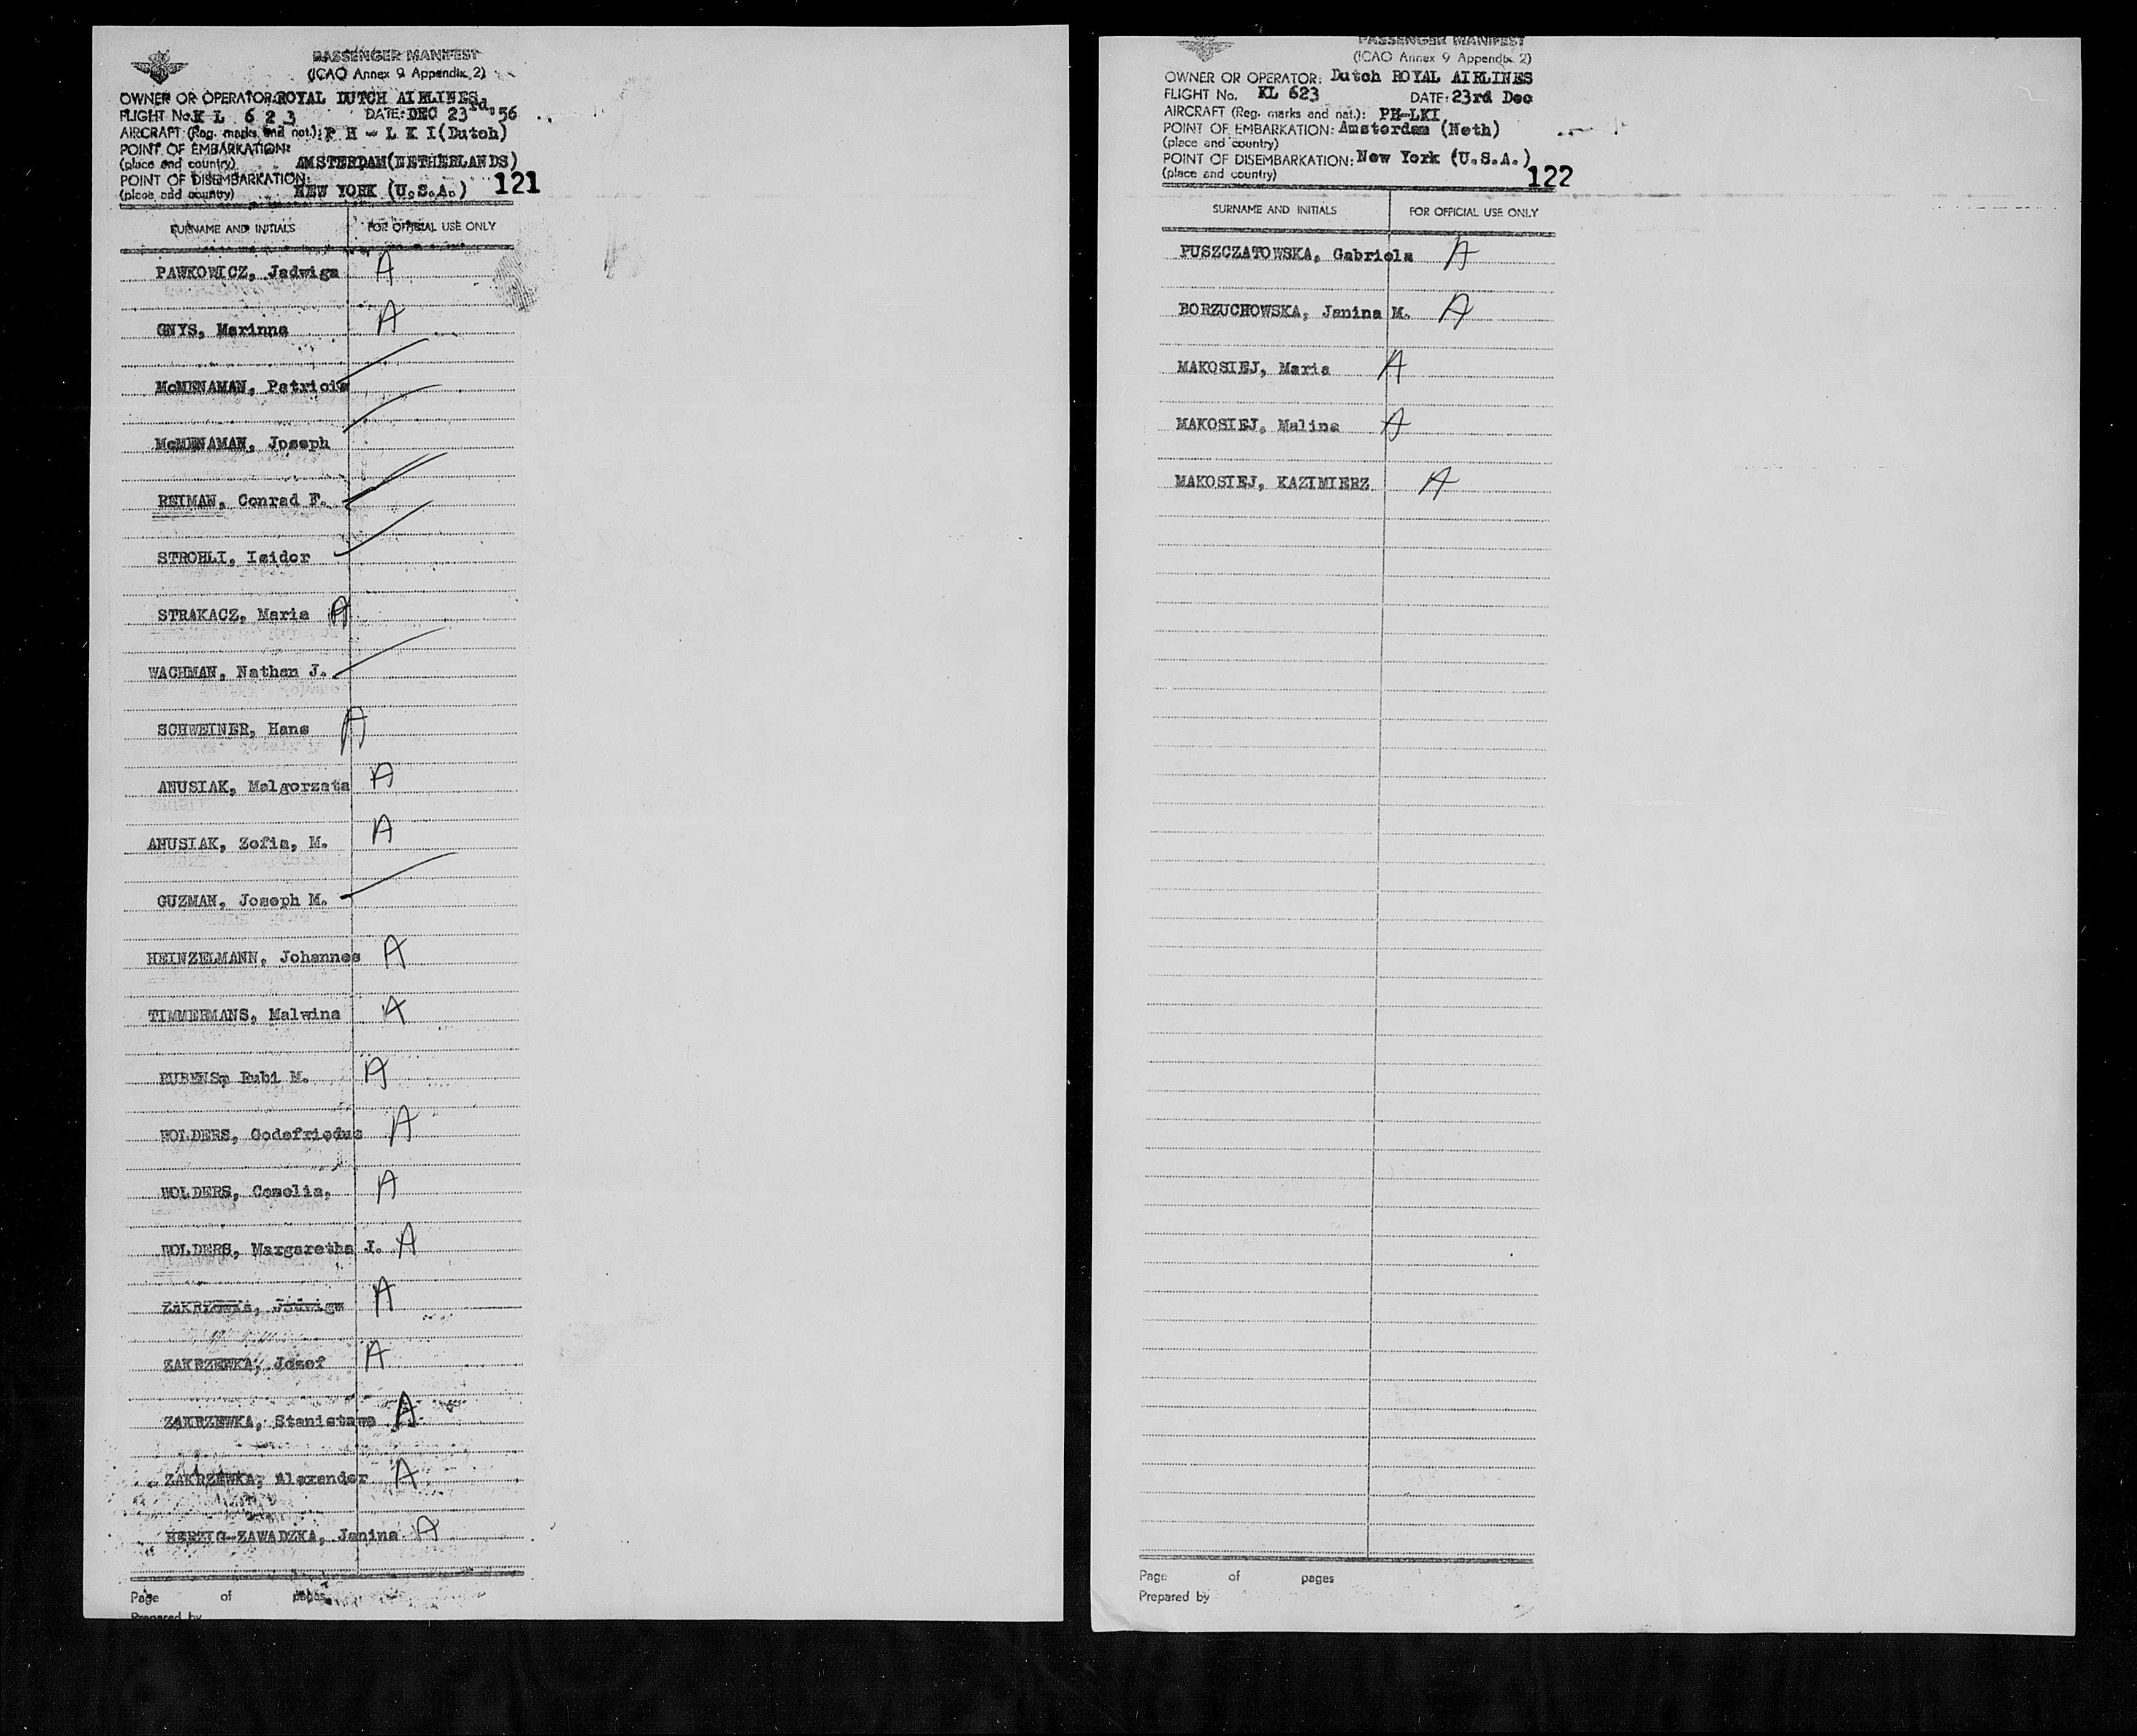 PASSENGER MANIFEST
(ICAO Annex 9 Appendix 2)
OWNER OR OPERATOR: ROYAL DUTCH AIRLINES
FLIGHT No. K L 6 2 3 DATE: DEC 23rd, 56
AIRCRAFT (Reg. marks and nat.): P H - L K I (Dutch)
POINT OF EMBARKATION:
(place and country) AMSTERDAM(NETHERLANDS)
POINT OF DISEMBARKATION:
(place and country) NEW YORK (U.S.A.) 121
SURNAME AND INITIALS FOR OFFICIAL USE ONLY
PAWKOWICZ, Jadwiga A
GNYS, Marinna A
McMENAMAN, Patricia
McMENAMAN, Joseph
REIMAN, Conrad F.
STROHLI, Isidor
STRAKACZ, Maria A
WACHMAN, Nathan J.
SCHWEINER, Hans A
ANUSIAK, Malgorzata A
ANUSIAK, Zofia, M. A
GUZMAN, Joseph M.
HEINZELMANN, Johannes A
TIMMERMANS, Malwina A
RUBENS, Rubi M. A
HOLDERS, Godefriedus A
HOLDERS, Cornelia, A
HOLDERS, Margaretha J. A
Jadwiga A
ZAKRZEWKA, Josef A
ZAKRZEWKA, Stanistawa A
ZAKRZEWKA, Alexander A
HERZIG-ZAWADZKA, Janina A
Page of pages
Prepared by
PASSENGER MANIFEST
(ICAO Annex 9 Appendix 2)
OWNER OR OPERATOR: Dutch ROYAL AIRLINES
FLIGHT No. KL 623 DATE: 23rd Dec
AIRCRAFT (Reg. marks and nat.): PH-LKI
POINT OF EMBARKATION: Amsterdam (Neth)
(place and country)
POINT OF DISEMBARKATION: New York (U.S.A.)
(place and country) 122
SURNAME AND INITIALS FOR OFFICIAL USE ONLY
PUSZCZATOWSKA, Gabriela A
BORZUCHOWSKA, Janina M. A
MAKOSIEJ, Maria A
MAKOSIEJ, Malina A
MAKOSIEJ, KAZIMIERZ A
Page of pages
Prepared by